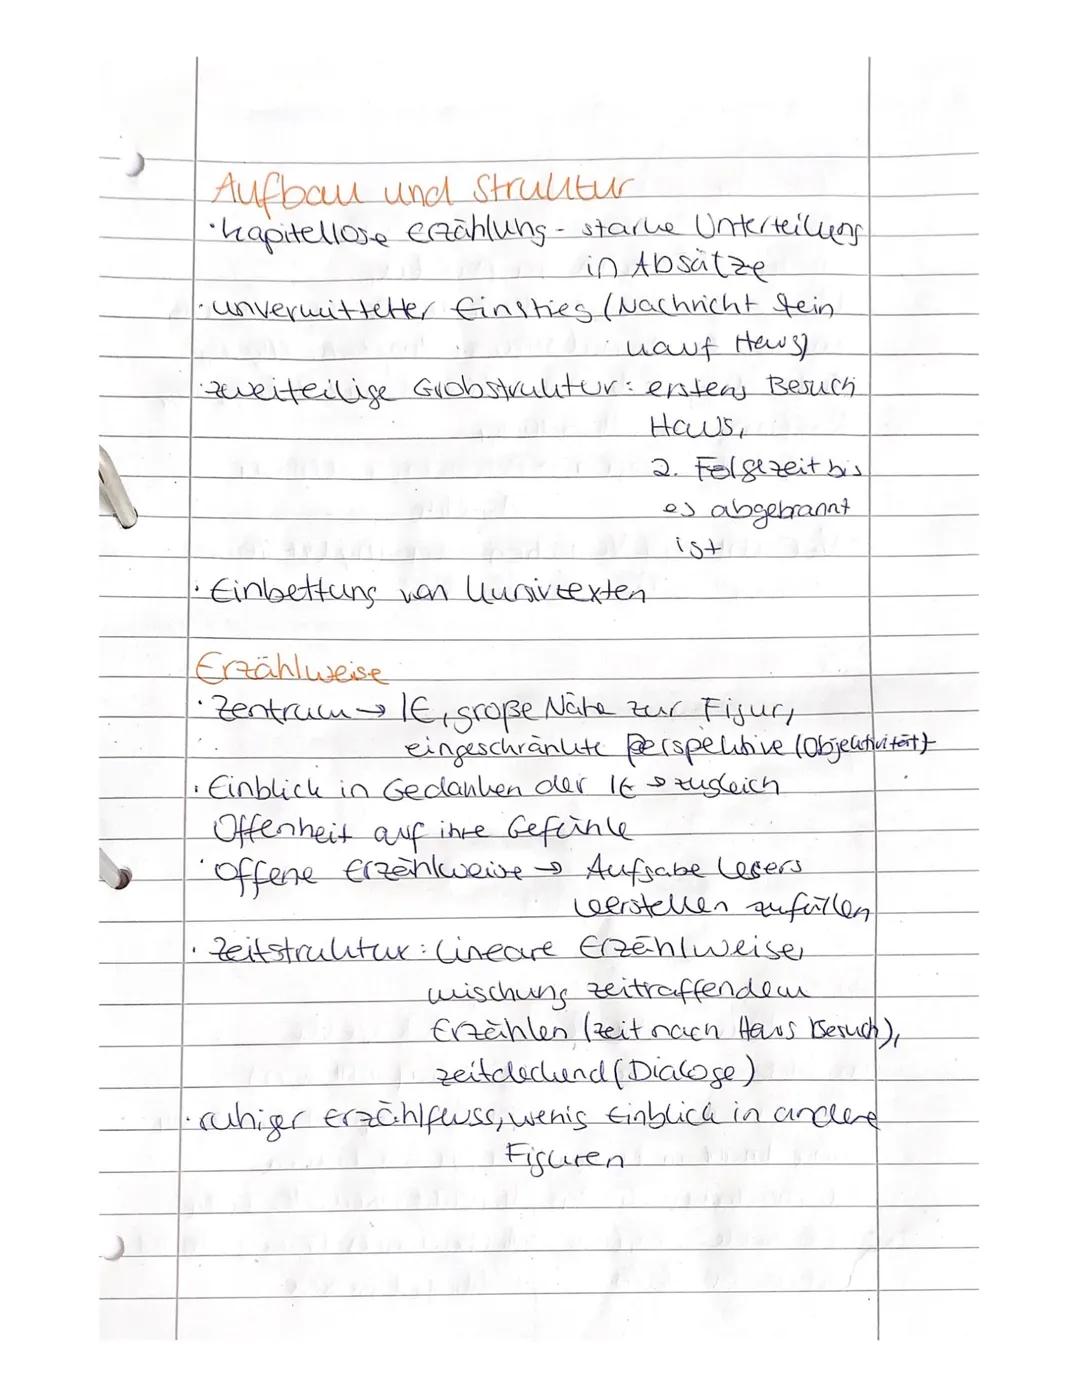 Aufbau und Struktur
· kapitellose Erzählung - starke Unterteilung
in Absätze
· unvermittelter Einstieg (Nachricht
kauf Haus)
· zweiteilige Grobstruktur: erstens Besuch
Haus,
2. Folgezeit bis
es abgebrannt
ist
· Einbettung von Kursivtexten
Erzählweise
· Zentrum → IE, große Nähe zur Figur,
eingeschränkte Perspektive (Objektivität)
· Einblick in Gedanken der IE → zugleich
Offenheit auf ihre Gefühle
· offene Erzählweise → Aufgabe Lesers
Leerstellen zufüllen
· Zeitstruktur: Lineare Erzählweise,
mischung zeitraffendem
Erzählen (Zeit nach Haus Besuch),
zeitdeckend (Dialoge)
· ruhiger Erzählfluss, wenig Einblick in andere
Figuren